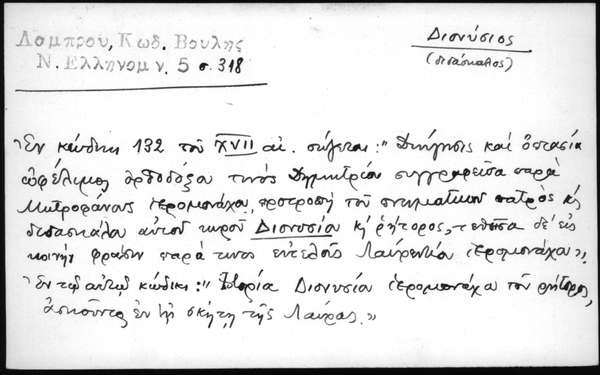 Λαμπρου, Κωδ. Βουλης
Ν. Ελληνομν. 5 σ. 318
Διονύσιος
(διδάσκαλος)
Ἐν κώδικι 132 τοῦ XVII αἰ. σώζεται: "Διήγησις καὶ ὀπτασία
ὠφέλιμος ὀρθοδόξου τινὸς Δημητρίου συγγραφεῖσα παρὰ
Μητροφάνους ἱερομονάχου προτροπῇ τοῦ πνευματικοῦ πατρὸς κ
διδασκάλου αὐτοῦ κυροῦ Διονυσίου κ ῥήτορος, τεθεῖσα δὲ εἰς
κοινὴν φράσιν παρά τινος εὐτελοῦς Λαυρεντίου ἱερομονάχου".
Ἐν τῷ αὐτῷ κώδικι: "Ἱστορία Διονυσίου ἱερομονάχου τοῦ ῥήτορος,
ἀσκοῦντος ἐν τῇ σκήτῃ τῆς Λαύρας."